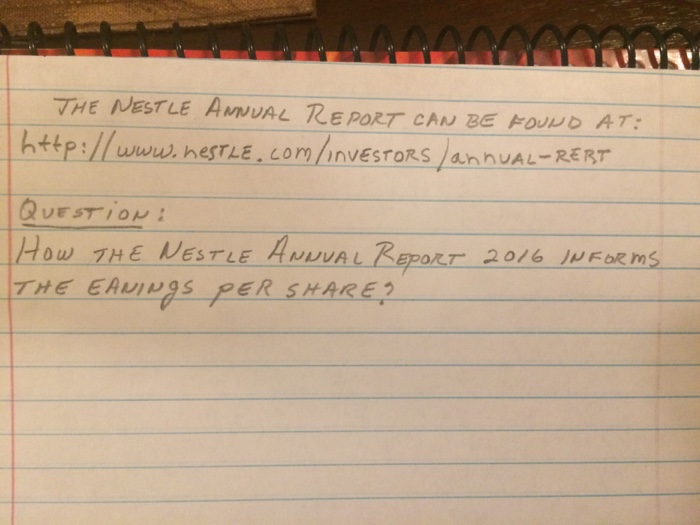 THE NESTLE ANNUAL REPORT CAN BE FOUND AT:
http://www.nESTLE.com/inVESTORS/annUAL-RERT
QUESTION:
HOW THE NESTLE ANNUAL REPORT 2016 INFORMS
THE EANINGS PER SHARE?